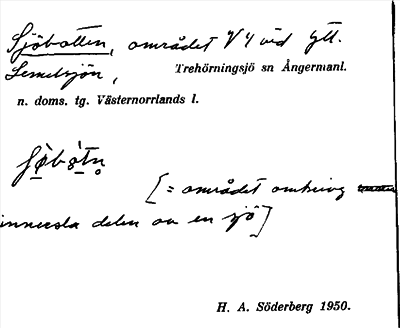 Sjöbotten, området V4 vid ytt.
Lemelsjön, Trehörningsjö sn Ångermanl.
n. doms. tg. Västernorrlands l.
[= området omkring
innersta delen av en sjö]
H. A. Söderberg 1950.